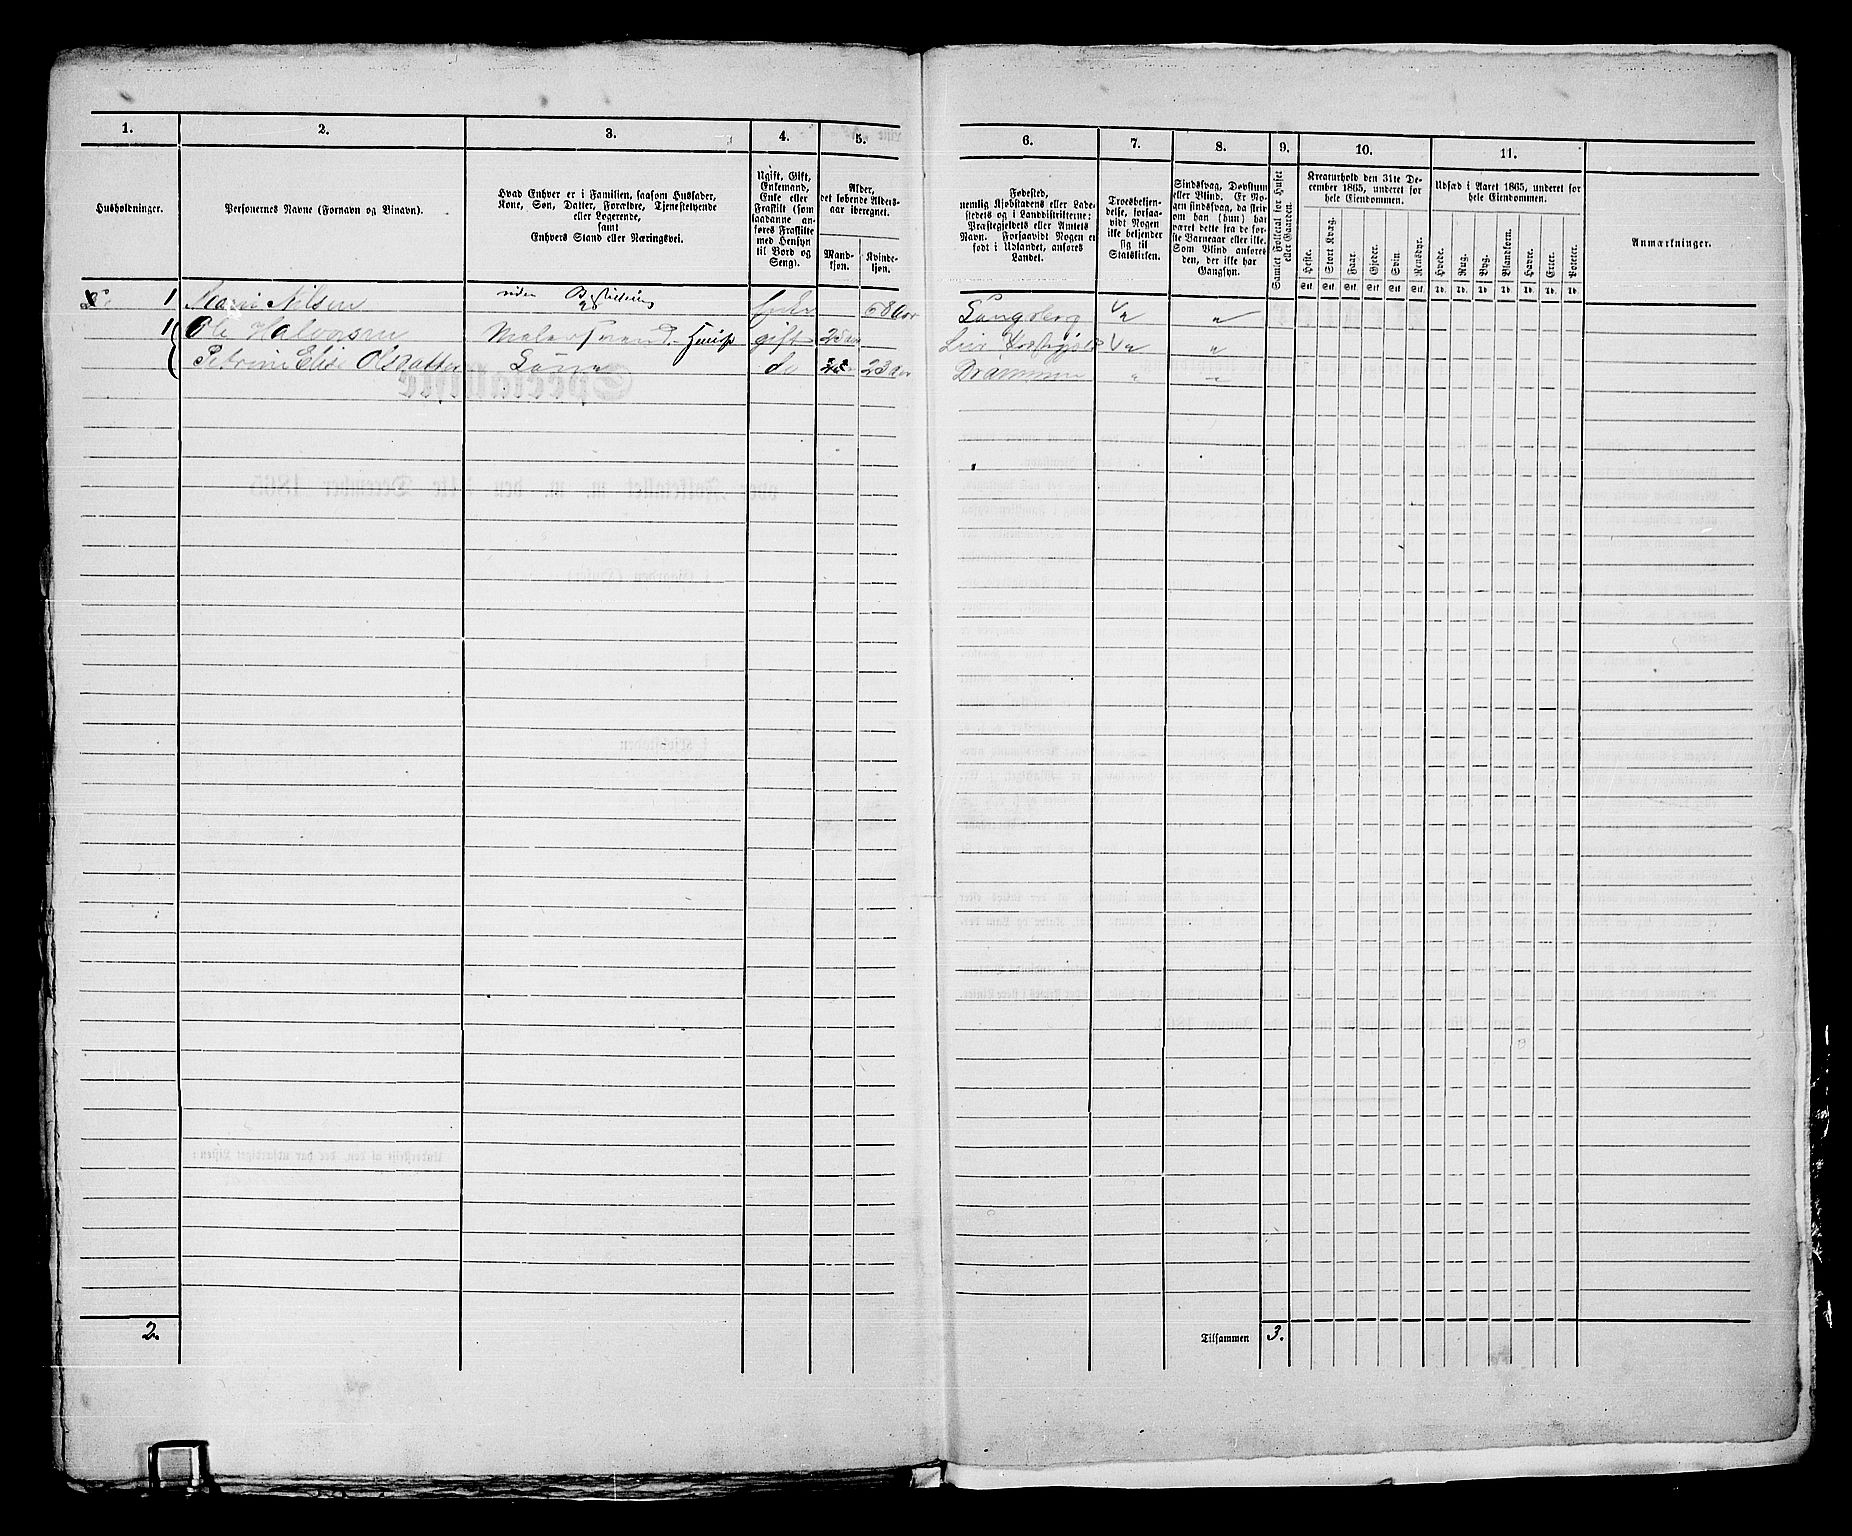 1. 2. 3. 4. 5. 6. 7. 8. 9. 10. 11.
Husholdninger.
Personernes Navne (Fornavn og Binavn).
Hvad Enhver er i Familien, saasom Husfader,
Kone, Søn, Datter, Forældre, Tjenestetyende
eller Logerende,
samt
Enhvers Stand eller Næringsvei.
Ugift, Gift,
Enkemand,
Enke eller
Fraskilt (som
saadanne an-
føres Fraskilte
med Hensyn
til Bord og
Seng).
Alder,
det løbende Alders-
aar iberegnet.
Mand-
kjøn.
Kvinde-
kjøn.
Fødested,
nemlig Kjøbstadens eller Lade-
stedets og i Landdistrikterne:
Præstegjeldets eller Amtets
Navn. Forsaavidt Nogen er
født i Udlandet, anføres
Landet.
Troesbekjen-
delse, forsaa-
vidt Nogen
ikke bekjender
sig til
Statskirken.
Sindssvag, Døvstum
eller Blind. Er No-
gen sindssvag, da skriv
om han (hun) har
været dette fra de før-
ste Barneaar eller ikke.
Som Blind anføres
den, der ikke har
Gangsyn.
Samlet Folketal for Huset
eller Gaarden.
Kreaturhold den 31te De-
cember 1865, underet for
hele Eiendommen.
Heste. Stort Kvæg. Faar. Gjeder. Svin. Rensdyr.
Stk. Stk. Stk. Stk. Stk. Stk.
Udsæd i Aaret 1865, underet for
hele Eiendommen.
Hvede. Rug. Byg. Blandkorn. Havre. Erter. Poteter.
Td. Td. Td. Td. Td. Td. Td.
Anmærkninger.
1 Nilsen uden Bestilling Enke 68 Aar "
1 Ole Halvorsen Malersvend gift 25 Lier Præstegjeld "
Petrine Elise Olsdatter do 23 Aar Drammen " "
2. Tilsammen 3.